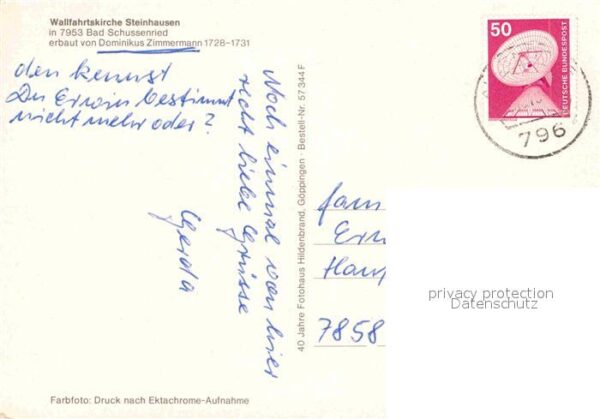 Wallfahrtskirche Steinhausen
in 7953 Bad Schussenried
erbaut von Dominikus Zimmermann 1728–1731
den kennst
Du Erwin bestimmt
nicht mehr oder?
Noch einmal von hier
recht liebe Grüsse
Gerda
40 Jahre Fotohaus Hildenbrand, Göppingen · Bestell-Nr. 57344F
50
DEUTSCHE BUNDESPOST
796
Fam
Erw
Haup
7858
privacy protection
Datenschutz
Farbfoto: Druck nach Ektachrome-Aufnahme